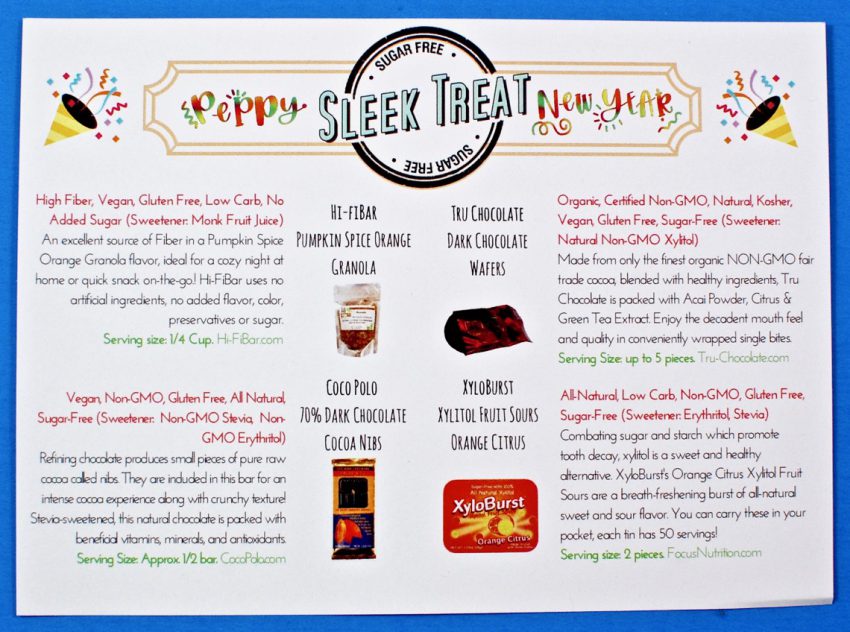 SUGAR FREE
Peppy SLEEK TREAT New Year
SUGAR FREE
High Fiber, Vegan, Gluten Free, Low Carb, No
Added Sugar (Sweetener: Monk Fruit Juice)
An excellent source of Fiber in a Pumpkin Spice
Orange Granola flavor, ideal for a cozy night at
home or quick snack on-the-go! Hi-FiBar uses no
artificial ingredients, no added flavor, color,
preservatives or sugar.
Serving size: 1/4 Cup. Hi-FiBar.com
Hi-fiBar
Pumpkin Spice Orange
Granola
Tru Chocolate
Dark Chocolate
Wafers
Organic, Certified Non-GMO, Natural, Kosher,
Vegan, Gluten Free, Sugar-Free (Sweetener:
Natural Non-GMO Xylitol)
Made from only the finest organic NON-GMO fair
trade cocoa, blended with healthy ingredients, Tru
Chocolate is packed with Acai Powder, Citrus &
Green Tea Extract. Enjoy the decadent mouth feel
and quality in conveniently wrapped single bites.
Serving Size: up to 5 pieces. Tru-Chocolate.com
Vegan, Non-GMO, Gluten Free, All Natural,
Sugar-Free (Sweetener: Non-GMO Stevia, Non-
GMO Erythritol)
Refining chocolate produces small pieces of pure raw
cocoa called nibs. They are included in this bar for an
intense cocoa experience along with crunchy texture!
Stevia-sweetened, this natural chocolate is packed with
beneficial vitamins, minerals, and antioxidants.
Serving Size: Approx. 1/2 bar. CocoPolo.com
Coco Polo
70% Dark Chocolate
Cocoa Nibs
XyloBurst
Xylitol Fruit Sours
Orange Citrus
Sugar-Free with 100%
All Natural Xylitol
XyloBurst
Orange Citrus
All-Natural, Low Carb, Non-GMO, Gluten Free,
Sugar-Free (Sweetener: Erythritol, Stevia)
Combating sugar and starch which promote
tooth decay, xylitol is a sweet and healthy
alternative. XyloBurst's Orange Citrus Xylitol Fruit
Sours are a breath-freshening burst of all-natural
sweet and sour flavor. You can carry these in your
pocket, each tin has 50 servings!
Serving size: 2 pieces. FocusNutrition.com